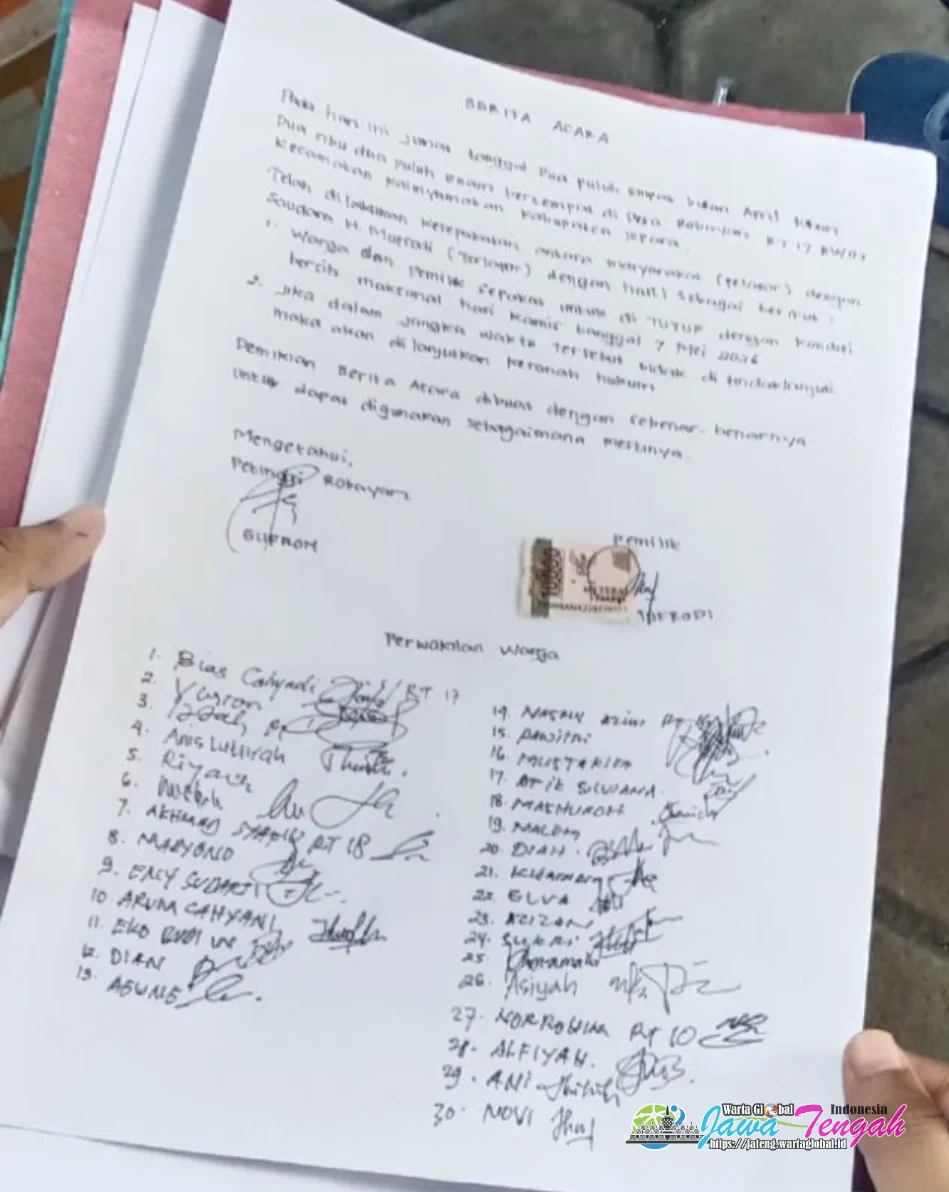 BERITA ACARA
Pada hari ini Jumat tanggal Dua puluh empat bulan April tahun
Dua ribu dua puluh enam bertempat di Desa Robayan RT 17 RW 03
Kecamatan Kalinyamatan Kabupaten Jepara.
Telah dilakukan kesepakatan antara masyarakat (pelapor) dengan
Saudara H. Mufrodi (Terlapor) dengan hasil sebagai berikut :
1. Warga dan pemilik sepakat untuk di TUTUP dengan kondisi
bersih maksimal hari Kamis tanggal 7 Mei 2026
2. Jika dalam jangka waktu tersebut tidak di tindaklanjuti
maka akan di lanjutkan keranah hukum
Demikian Berita Acara dibuat dengan sebenar-benarnya
untuk dapat digunakan sebagaimana mestinya.
Mengetahui,
Petinggi Robayan
GUFRON
Pemilik
10000
METERAI
TEMPEL
MUFRODI
Perwakilan Warga
1. Bias Cahyadi RT 17
2. Yusron
3.
4. Anis Lutfirah
5.
6.
7. AKHMAD SYAFIQ RT 18
8. MARYONO
9. ENY SUDARTI
10 ARUM CAHYANI
11. EKO BUDI W
12. DIAN
13. AGUNG
14.
15.
16. MUSTAKIDA
17. ATIK SILVIANA
18. MASHUROH
19.
20. DIAH
21.
22. ELVA
23. AZIZAH
24. SUKRI
25.
26. Asiyah
27. NORROHIM RT 10
28. ALFIYAH.
29. ANI
30. NOVI
Warta Global Indonesia
Jawa Tengah
https://jateng.wartaglobal.id